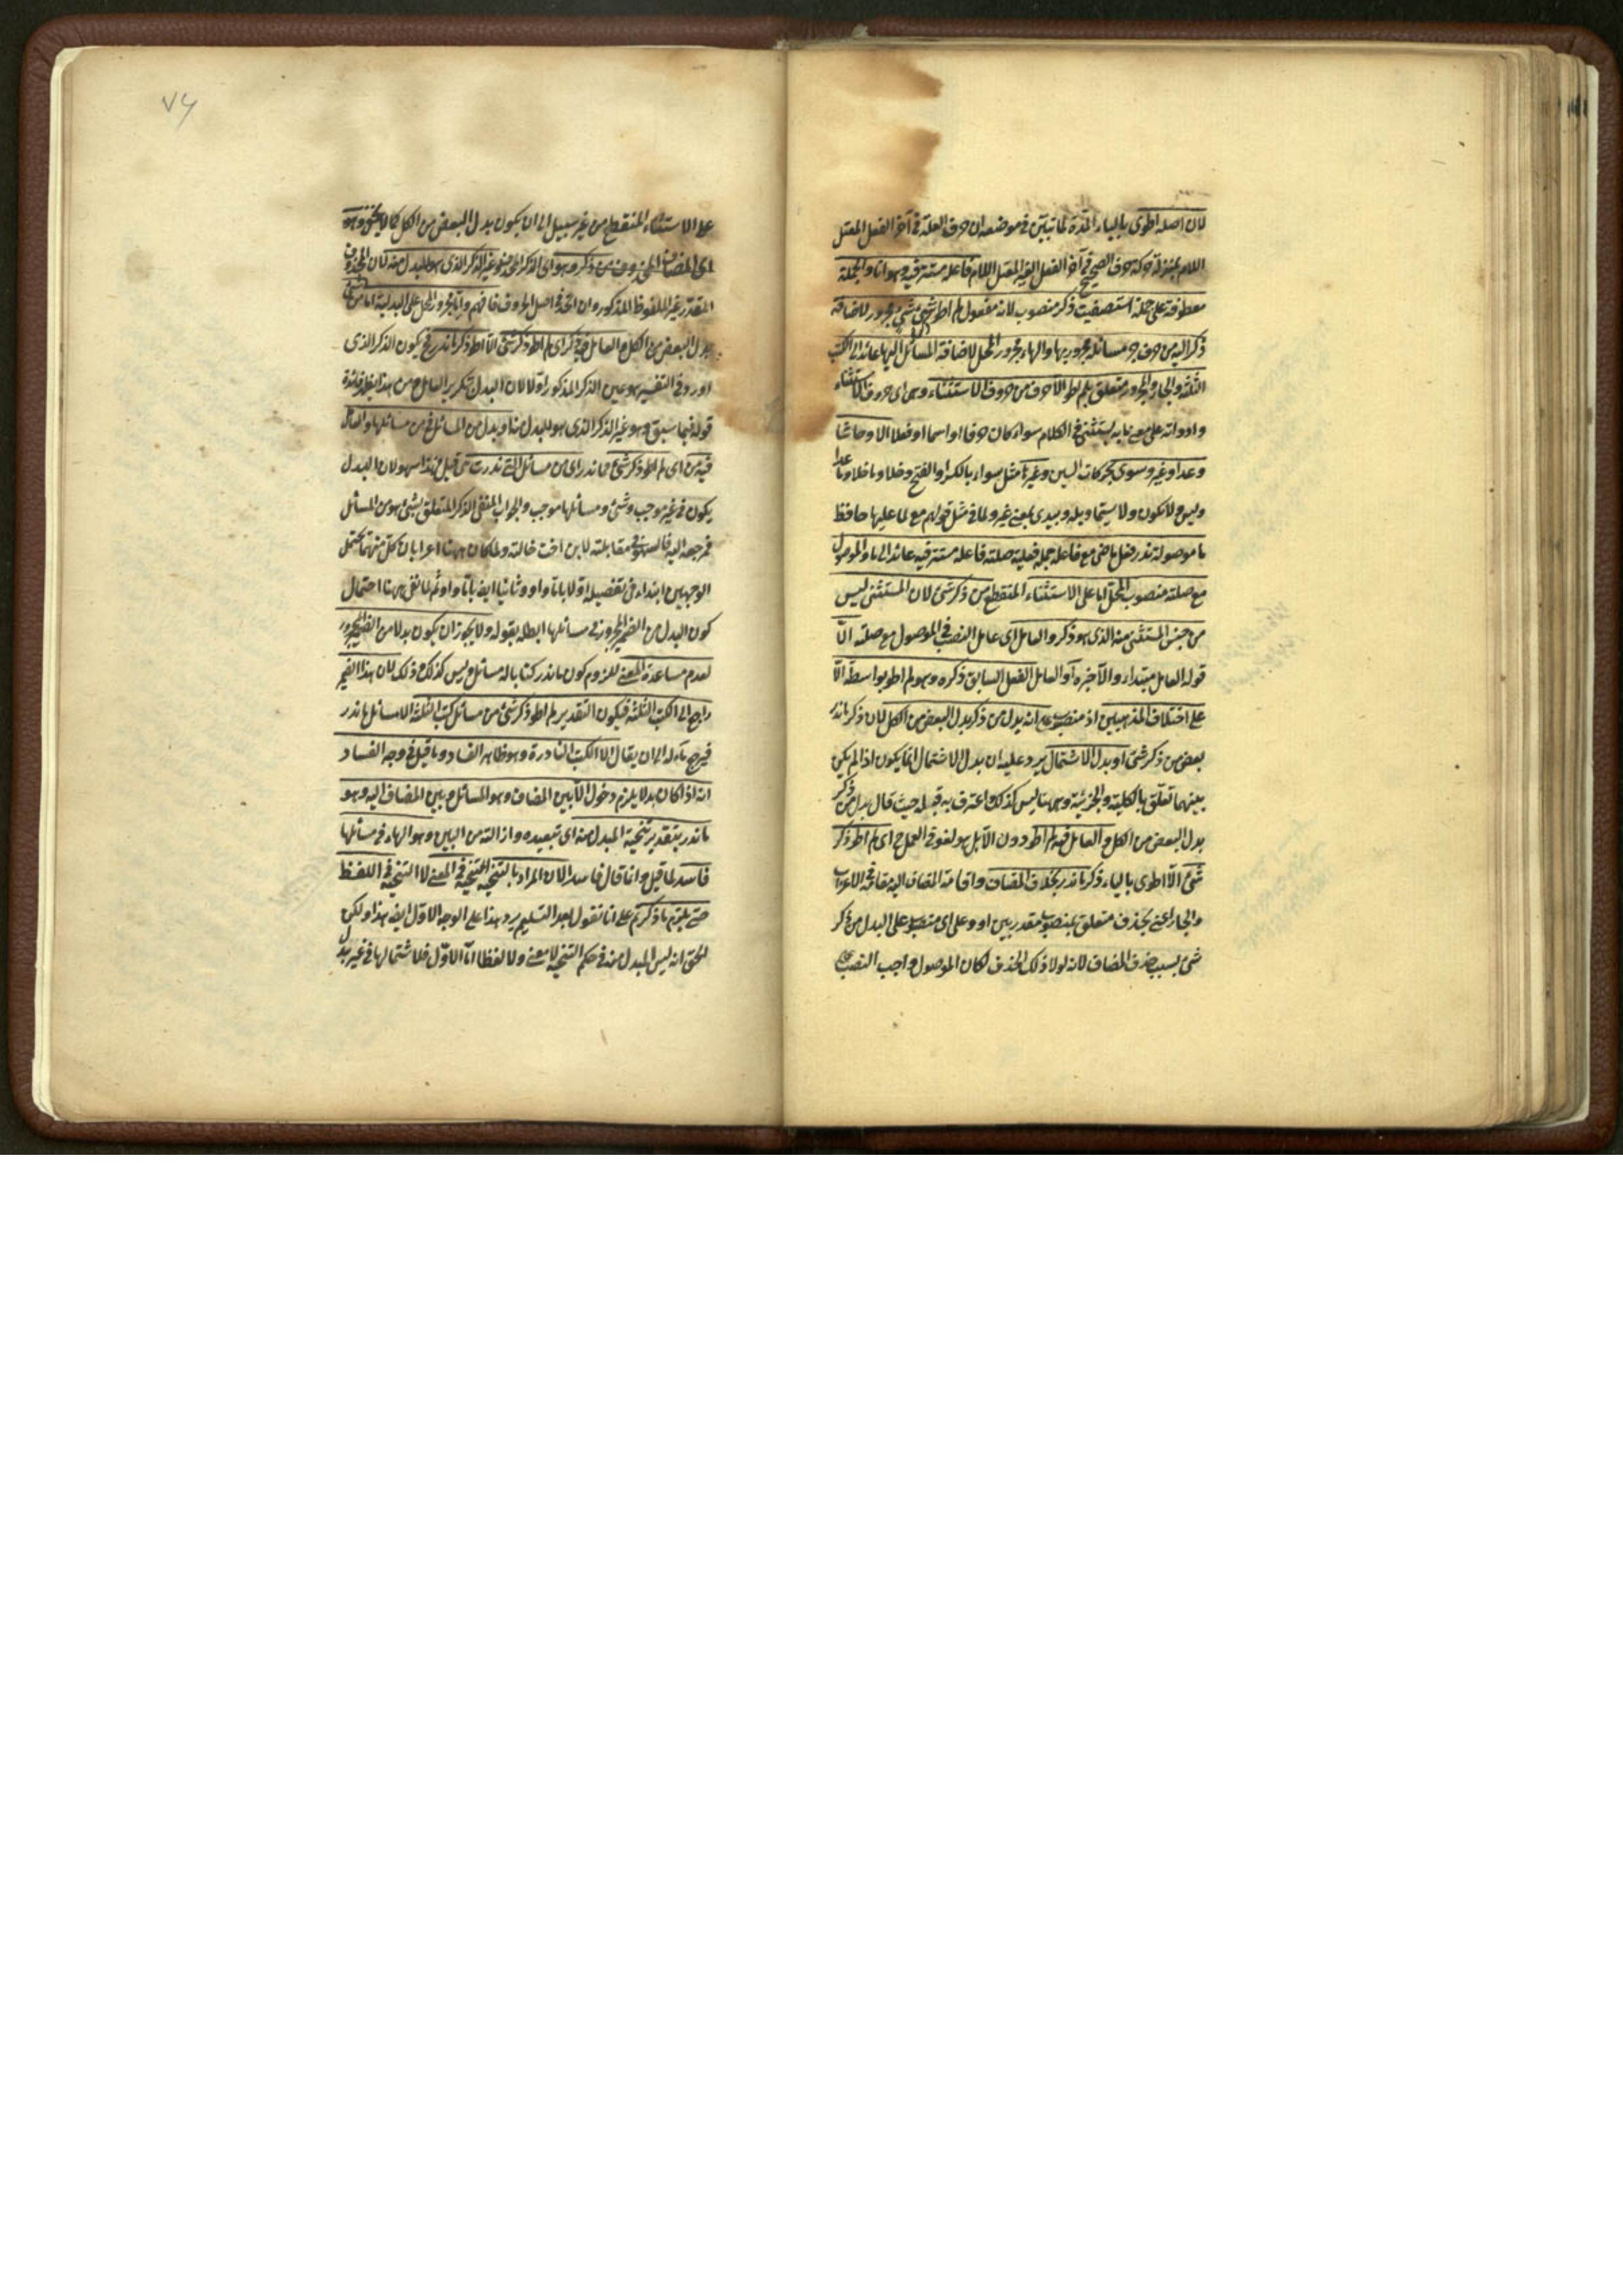 لان اصله اطوى بالياء المدة لما تبيّن فى موضعه ان حرف العلة فى آخر الفعل المعتل
اللام بمنزلة حركة حرف الصحيح فى آخر الفعل الغير المعتل اللام فاعله مستتر فيه وهو انا والجملة
معطوفة على جملة استصفيت ذكر منصوب لانه مفعول لم اطو شئ مجرور لاضافة
ذكر اليه من حرف جر مسائله مجرور بها والهاء مجرور المحل لاضافة المسائل اليها عائد الى الكتب
الثلثة والجار والمجرور متعلق بلم اطو الا حرف من حروف الاستثناء وهى اى حروف الاستثناء
وادواته على معنى ما به يستثنى فى الكلام سواء كان حرفا او اسما او فعلا الا وحاشا
وعدا وغير وسوى بحركات السين وغير مثل سواء بالكسر او الفتح وخلا وما خلا وما عدا
وليس ولا يكون ولا سيما وبله وبيد بمعنى غير ولما فى مثل قولهم مع لما عليها حافظ
ما موصولة ندر فعل ماضى مع فاعله جملة فعلية صلته فاعله مستتر فيه عائد الى ما والموصول
مع صلته منصوب المحل اما على الاستثناء المنقطع من ذكر شئ لان المستثنى ليس
من جنس المستثنى منه الذى هو ذكر والعامل اى عامل النصب فى الموصول مع صلته الّا
قوله العامل مبتدأ والا خبره او العامل الفعل السابق ذكره وهو لم اطو بواسطة الّا
على اختلاف المذهبين او منصوب على انه بدل من ذكر بدل البعض من الكل لان ذكر ما ندر
بعض من ذكر شئ او بدل الاشتمال يرد عليه ان بدل الاشتمال انما يكون اذا لم يكن
بينهما تعلّق بالكلية والجزئية وههنا ليس كذلك واعترف به قبله حيث قال بدل من ذكر
بدل البعض من الكل والعامل فيه لم اطو دون الّا بل هو لغو فى العمل ح اى لم اطو ذكر
شئ الّا اطوى بالياء ذكر ما ندر بحذف المضاف واقامة المضاف اليه مقامه فى الاعراب
والجار اعنى بحذف متعلق بمنصوب مقدر بين او وعلى اى منصوب على البدل من ذكر
شئ بسبب حذف المضاف لانه لولا ذلك الحذف لكان الموصول واجب النصب
على الاستثناء المنقطع من غير سبيل الى ان يكون بدل البعض من الكل كما لا يخفى وهو
اى المضاف المحذوف من ذكر وهو اى الذكر المحذوف غير الذكر الذى هو المبدل منه لان المحذوف
المقدر غير الملفوظ المذكور وان اتحد فى اصل الحروف فافهم واما مجرور المحل على البدلية اما من شئ
بدل البعض من الكل والعامل فيه ذكر اى لم اطو ذكر شئ الّا اطو ذكر ما ندر فح يكون الذكر الذى
اورد فى التفسير هو عين الذكر المذكور اوّلا لان البدل بتكرير العامل ومن هذا يظهر فائدة
قوله فيما سبق وهو غير الذكر الذى هو المبدل منه او بدل من المسائل فى من مسائلها والعامل
فيه من اى لم اطو ذكر شئ مما ندر اى من مسائل التى ندرت قيل هذا سهو لان البدل
يكون فى غير موجب وشئ ومسائلها موجب والجواب المنفى الذكر المتعلق بشئ هو من المسائل
فمرجعه اليه فالسهو فى مقابلته لابن اخت خالته ولما كان ههنا اعرابان كل منهما يحتمل
الوجهين ابتداء فى تفصيله اولا باما واو وثانيا ايضا باما واو ثم لما بقى ههنا احتمال
كون البدل من الضمير المجرور فى مسائلها ابطله بقوله ولا يجوز ان يكون بدلا من الضمير المجرور
لعدم مساعدة المعنى للزوم كون ما ندر كتابا له مسائل وليس كذلك وذلك لان هذا الضمير
راجع الى الكتب الثلثة فيكون التقدير لم اطو ذكر شئ من مسائل كتب الثلثة الا مسائل ما ندر
فيرجع مآله الى ان يقال الا الكتب النادرة وهو ظاهر الفساد وما قيل فى وجه الفساد
انه اذا كان بدلا يلزم دخول الّا بين المضاف وهو المسائل وبين المضاف اليه وهو
ما ندر بتقدير تنحية المبدل منه اى تبعيده وازالته من البين وهو الهاء فى مسائلها
فاسد لما قيل وانما قال فاسد الان المراد بالتنحية التنحية فى المعنى لا التنحية فى اللفظ
حتى يلزم ما ذكرتم على انا نقول بعد التسليم يرد هذا على الوجه الاوّل ايضا هذا ولكن
الحق انه ليس المبدل منه فى حكم التنحية لا معنى ولا لفظا امّا الاوّل فلاشتمالها فى غير بدل
٧٦